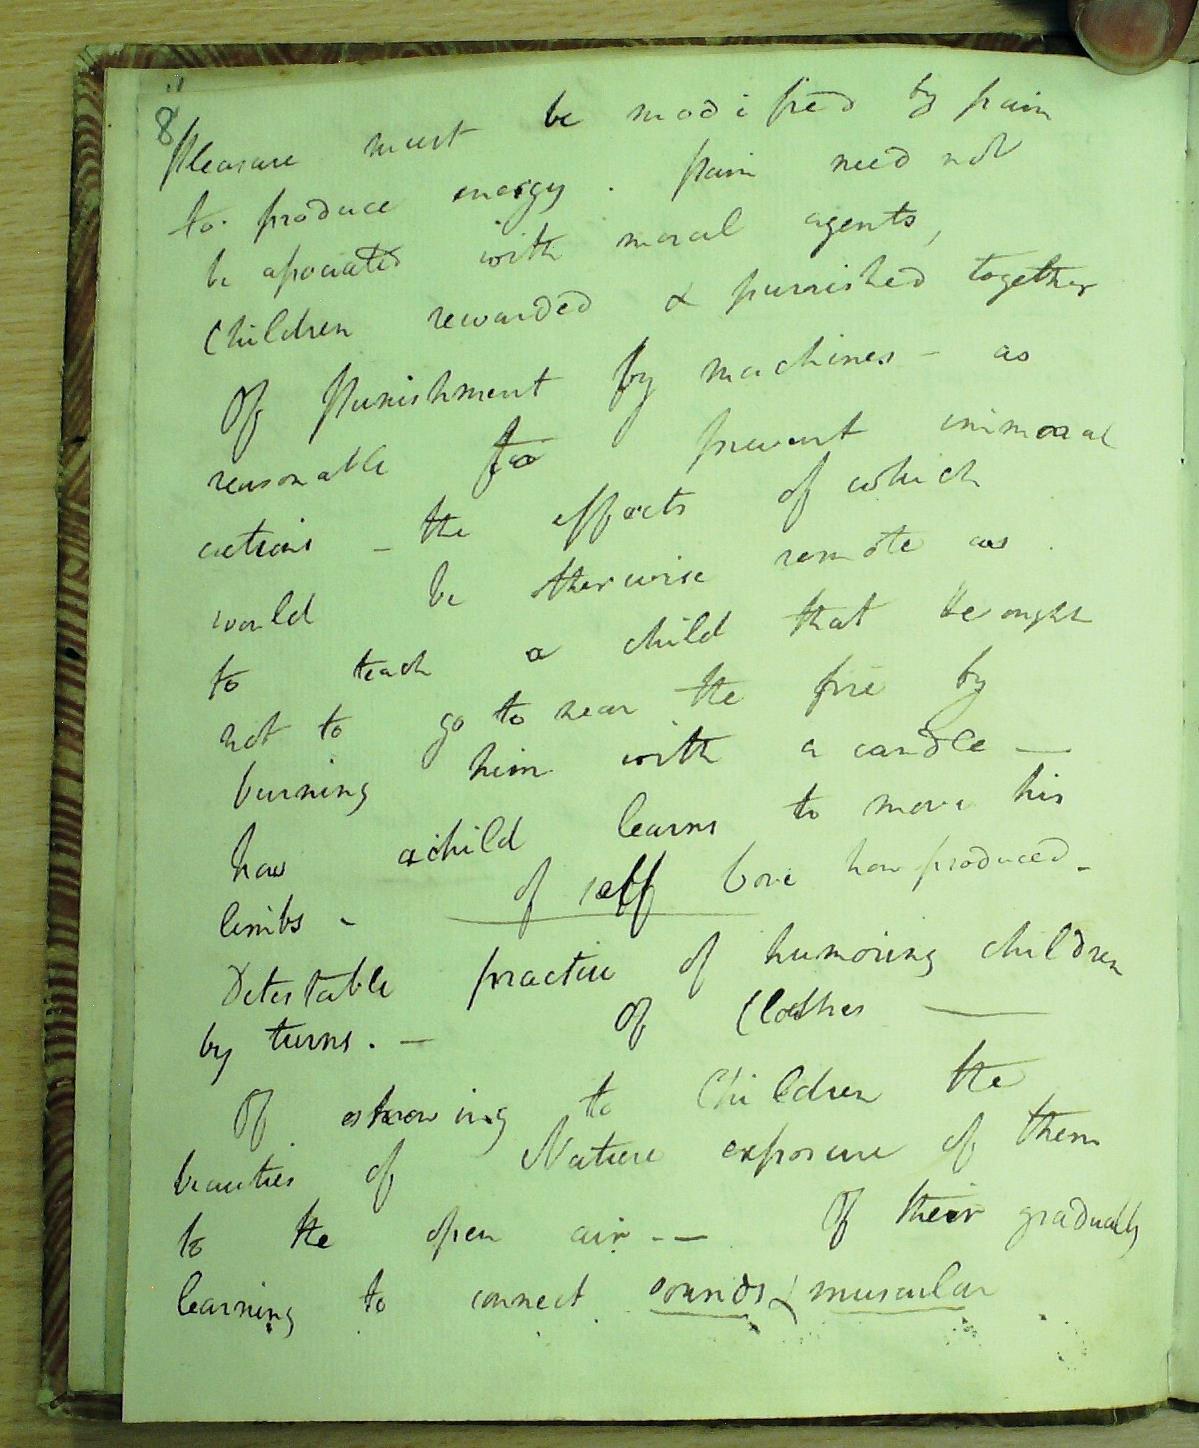 8
Pleasure must be modified by pain
to produce energy. Pain need not
be associated with moral agents,
Children rewarded & punished together
Of Punishment by machines - as
reasonable to prevent immoral
actions - the effects of which
would be otherwise remote as
to teach a child that he ought
not to go to near the fire by
burning him with a candle —
how a child learns to move his
limbs - of self love how produced -
Detestable practice of humoring children
by turns. — Of Clothes —
Of shewing to Children the
beauties of Nature exposure of them
to the open air - — Of their gradually
learning to connect sounds & muscular